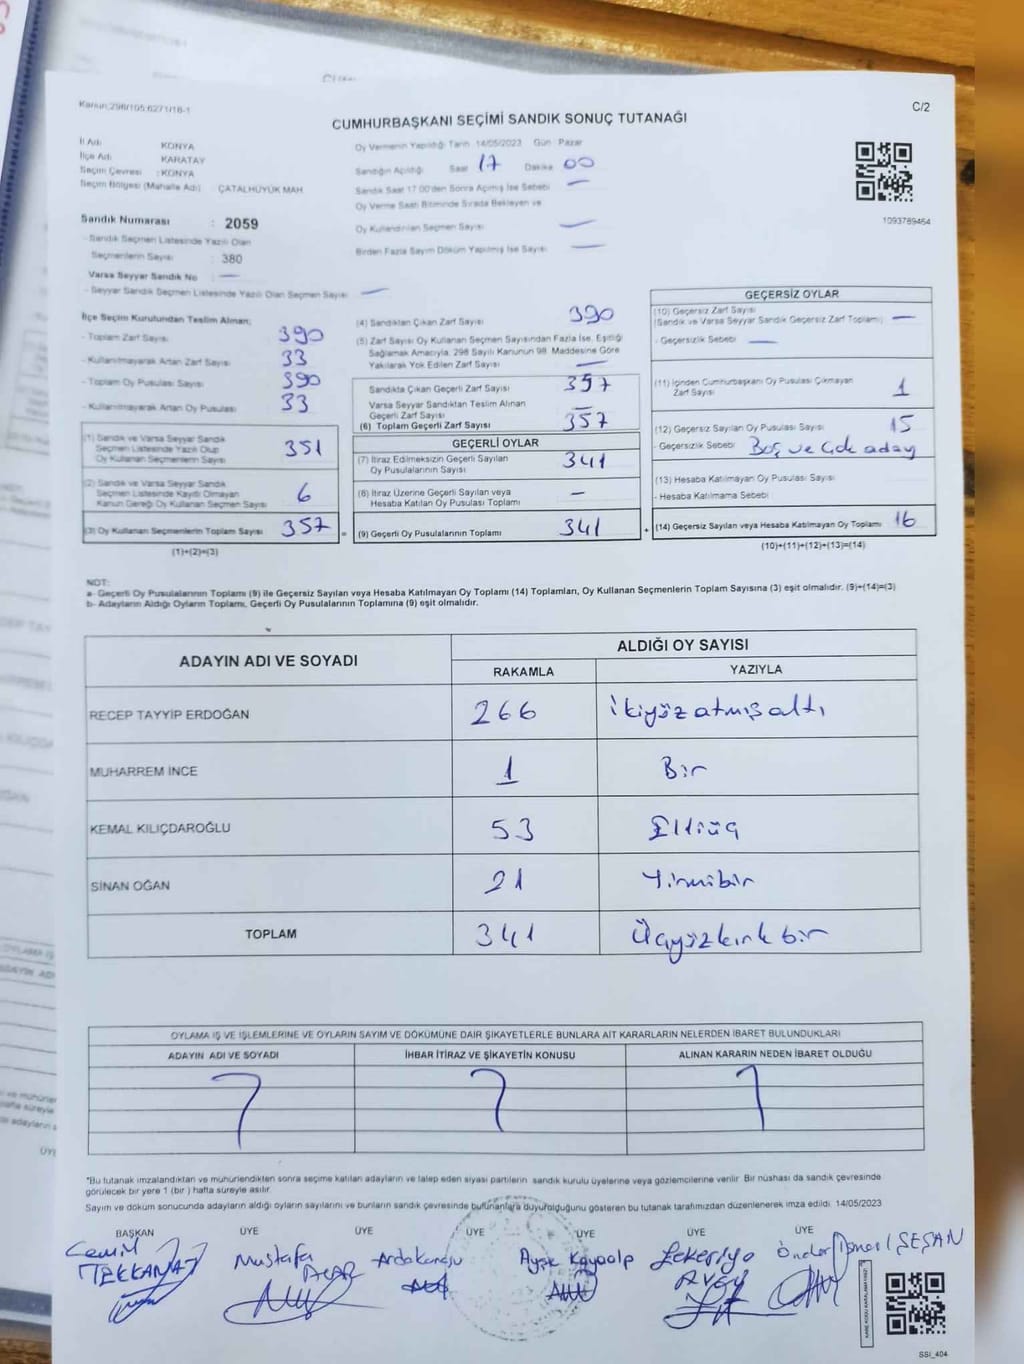 Kanun:298/105;6271/18-1
C/2
CUMHURBAŞKANI SEÇİMİ SANDIK SONUÇ TUTANAĞI
İl Adı KONYA
İlçe Adı KARATAY
Seçim Çevresi : KONYA
Seçim Bölgesi (Mahalle Adı) ÇATALHÜYÜK MAH
Sandık Numarası : 2059
- Sandık Seçmen Listesinde Yazılı Olan
Seçmenlerin Sayısı : 380
Varsa Seyyar Sandık No —
- Seyyar Sandık Seçmen Listesinde Yazılı Olan Seçmen Sayısı —
Oy Vermenin Yapıldığı Tarih 14/05/2023 Gün Pazar
Sandığın Açıldığı Saat 17 Dakika 00
Sandık Saat 17:00'den Sonra Açılmış İse Sebebi —
Oy Verme Saati Bitiminde Sırada Bekleyen ve
Oy Kullandırılan Seçmen Sayısı —
Birden Fazla Sayım Döküm Yapılmış İse Sayısı —
1093789464
İlçe Seçim Kurulundan Teslim Alınan;
- Toplam Zarf Sayısı 390
- Kullanılmayarak Artan Zarf Sayısı 33
- Toplam Oy Pusulası Sayısı 390
- Kullanılmayarak Artan Oy Pusulası 33
(1) Sandık ve Varsa Seyyar Sandık
Seçmen Listesinde Yazılı Olup
Oy Kullanan Seçmenlerin Sayısı 351
(2) Sandık ve Varsa Seyyar Sandık
Seçmen Listesinde Kayıtlı Olmayan
Kanun Gereği Oy Kullanan Seçmen Sayısı 6
(3) Oy Kullanan Seçmenlerin Toplam Sayısı 357 =
(1)+(2)=(3)
(4) Sandıktan Çıkan Zarf Sayısı 390
(5) Zarf Sayısı Oy Kullanan Seçmen Sayısından Fazla İse, Eşitliği
Sağlamak Amacıyla, 298 Sayılı Kanunun 98. Maddesine Göre
Yakılarak Yok Edilen Zarf Sayısı —
Sandıkta Çıkan Geçerli Zarf Sayısı 357
Varsa Seyyar Sandıktan Teslim Alınan
Geçerli Zarf Sayısı —
(6) Toplam Geçerli Zarf Sayısı 357
GEÇERLİ OYLAR
(7) İtiraz Edilmeksizin Geçerli Sayılan
Oy Pusulalarının Sayısı 341
(8) İtiraz Üzerine Geçerli Sayılan veya
Hesaba Katılan Oy Pusulası Toplamı —
(9) Geçerli Oy Pusulalarının Toplamı 341 +
GEÇERSİZ OYLAR
(10) Geçersiz Zarf Sayısı
(Sandık ve Varsa Seyyar Sandık Geçersiz Zarf Toplamı) —
- Geçersizlik Sebebi —
(11) İçinden Cumhurbaşkanı Oy Pusulası Çıkmayan
Zarf Sayısı 1
(12) Geçersiz Sayılan Oy Pusulası Sayısı 15
- Geçersizlik Sebebi Boş ve Çok aday
(13) Hesaba Katılmayan Oy Pusulası Sayısı
- Hesaba Katılmama Sebebi
(14) Geçersiz Sayılan veya Hesaba Katılmayan Oy Toplamı 16
(10)+(11)+(12)+(13)=(14)
NOT:
a- Geçerli Oy Pusulalarının Toplamı (9) ile Geçersiz Sayılan veya Hesaba Katılmayan Oy Toplamı (14) Toplamları, Oy Kullanan Seçmenlerin Toplam Sayısına (3) eşit olmalıdır. (9)+(14)=(3)
b- Adayların Aldığı Oyların Toplamı, Geçerli Oy Pusulalarının Toplamına (9) eşit olmalıdır.
ADAYIN ADI VE SOYADI ALDIĞI OY SAYISI
RAKAMLA YAZIYLA
RECEP TAYYİP ERDOĞAN 266 İkiyüzatmışaltı
MUHARREM İNCE 1 Bir
KEMAL KILIÇDAROĞLU 53 Elliüç
SİNAN OĞAN 21 Yirmibir
TOPLAM 341 Üçyüzkırk bir
OYLAMA İŞ VE İŞLEMLERİNE VE OYLARIN SAYIM VE DÖKÜMÜNE DAİR ŞİKAYETLERLE BUNLARA AİT KARARLARIN NELERDEN İBARET BULUNDUKLARI
ADAYIN ADI VE SOYADI İHBAR İTİRAZ VE ŞİKAYETİN KONUSU ALINAN KARARIN NEDEN İBARET OLDUĞU
*Bu tutanak imzalandıktan ve mühürlendikten sonra seçime katılan adayların ve talep eden siyasi partilerin sandık kurulu üyelerine veya gözlemcilerine verilir. Bir nüshası da sandık çevresinde
görülecek bir yere 1 (bir) hafta süreyle asılır.
Sayım ve döküm sonucunda adayların aldığı oyların sayılarını ve bunların sandık çevresinde bulunanlara duyurulduğunu gösteren bu tutanak tarafımızdan düzenlenerek imza edildi. 14/05/2023
BAŞKAN ÜYE ÜYE ÜYE ÜYE ÜYE ÜYE
Cemil TEKKANAT
Mustafa ACAR
Ayşe Kayaalp
Zekeriya
Önder İsmail ŞEŞAN
SSI_404